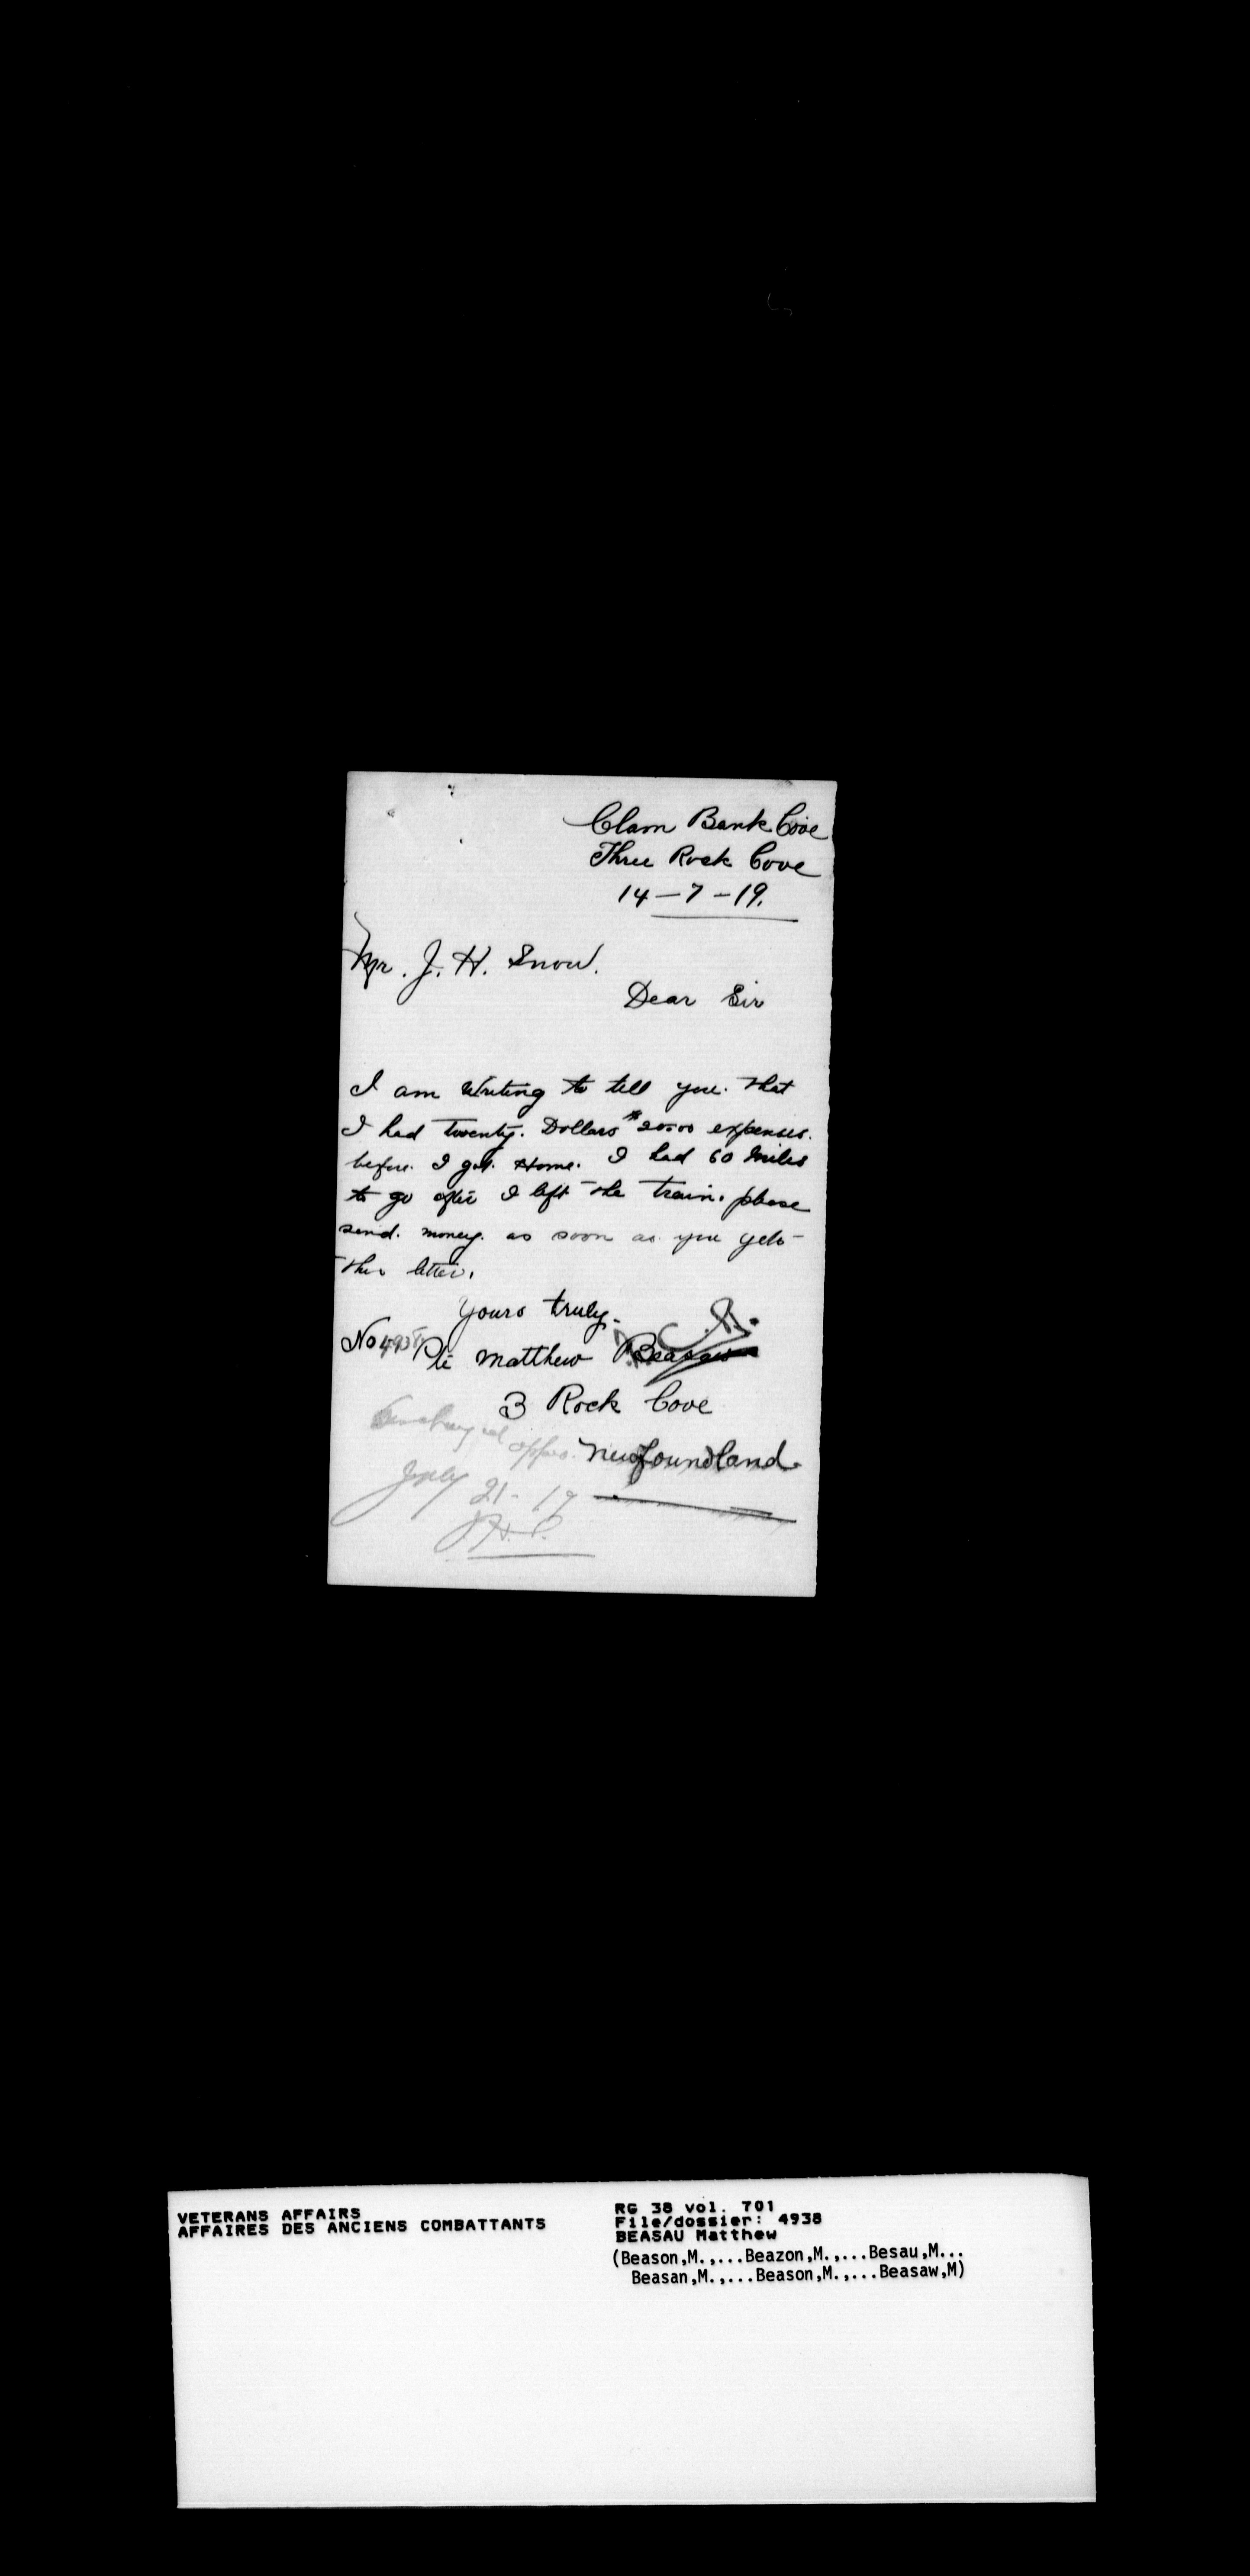 Clam Bank Cove
Three Rock Cove
14-7-19.
Mr. J. H. Snow.
Dear Sir
I am Writing to tell you. that
I had twenty. Dollars $20.00 expenses.
before. I got. Home. I had 60 Miles
to go after I left the train. please
send. money. as soon as you gets
this letter.
Yours truly.
No 4938 Pte Matthew Beasau
3 Rock Cove
Newfoundland.
July 21-19
VETERANS AFFAIRS
AFFAIRES DES ANCIENS COMBATTANTS
RG 38 vol. 701
File/dossier: 4938
BEASAU Matthew
(Beason,M.,...Beazon,M.,...Besau,M...
Beasan,M.,...Beason,M.,...Beasaw,M)